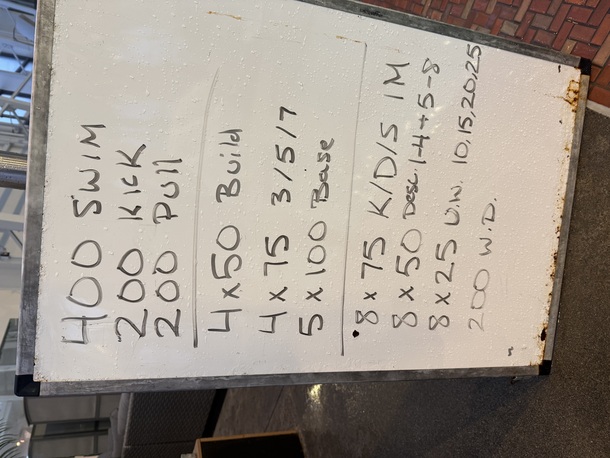 400 SWIM
200 KICK
200 PULL
4x50 Build
4x75 3/5/7
5x100 Base
• 8x75 K/D/S IM
8x50 Desc. 1-4+5-8
8x25 U.W. 10,15,20,25
200 W.D.